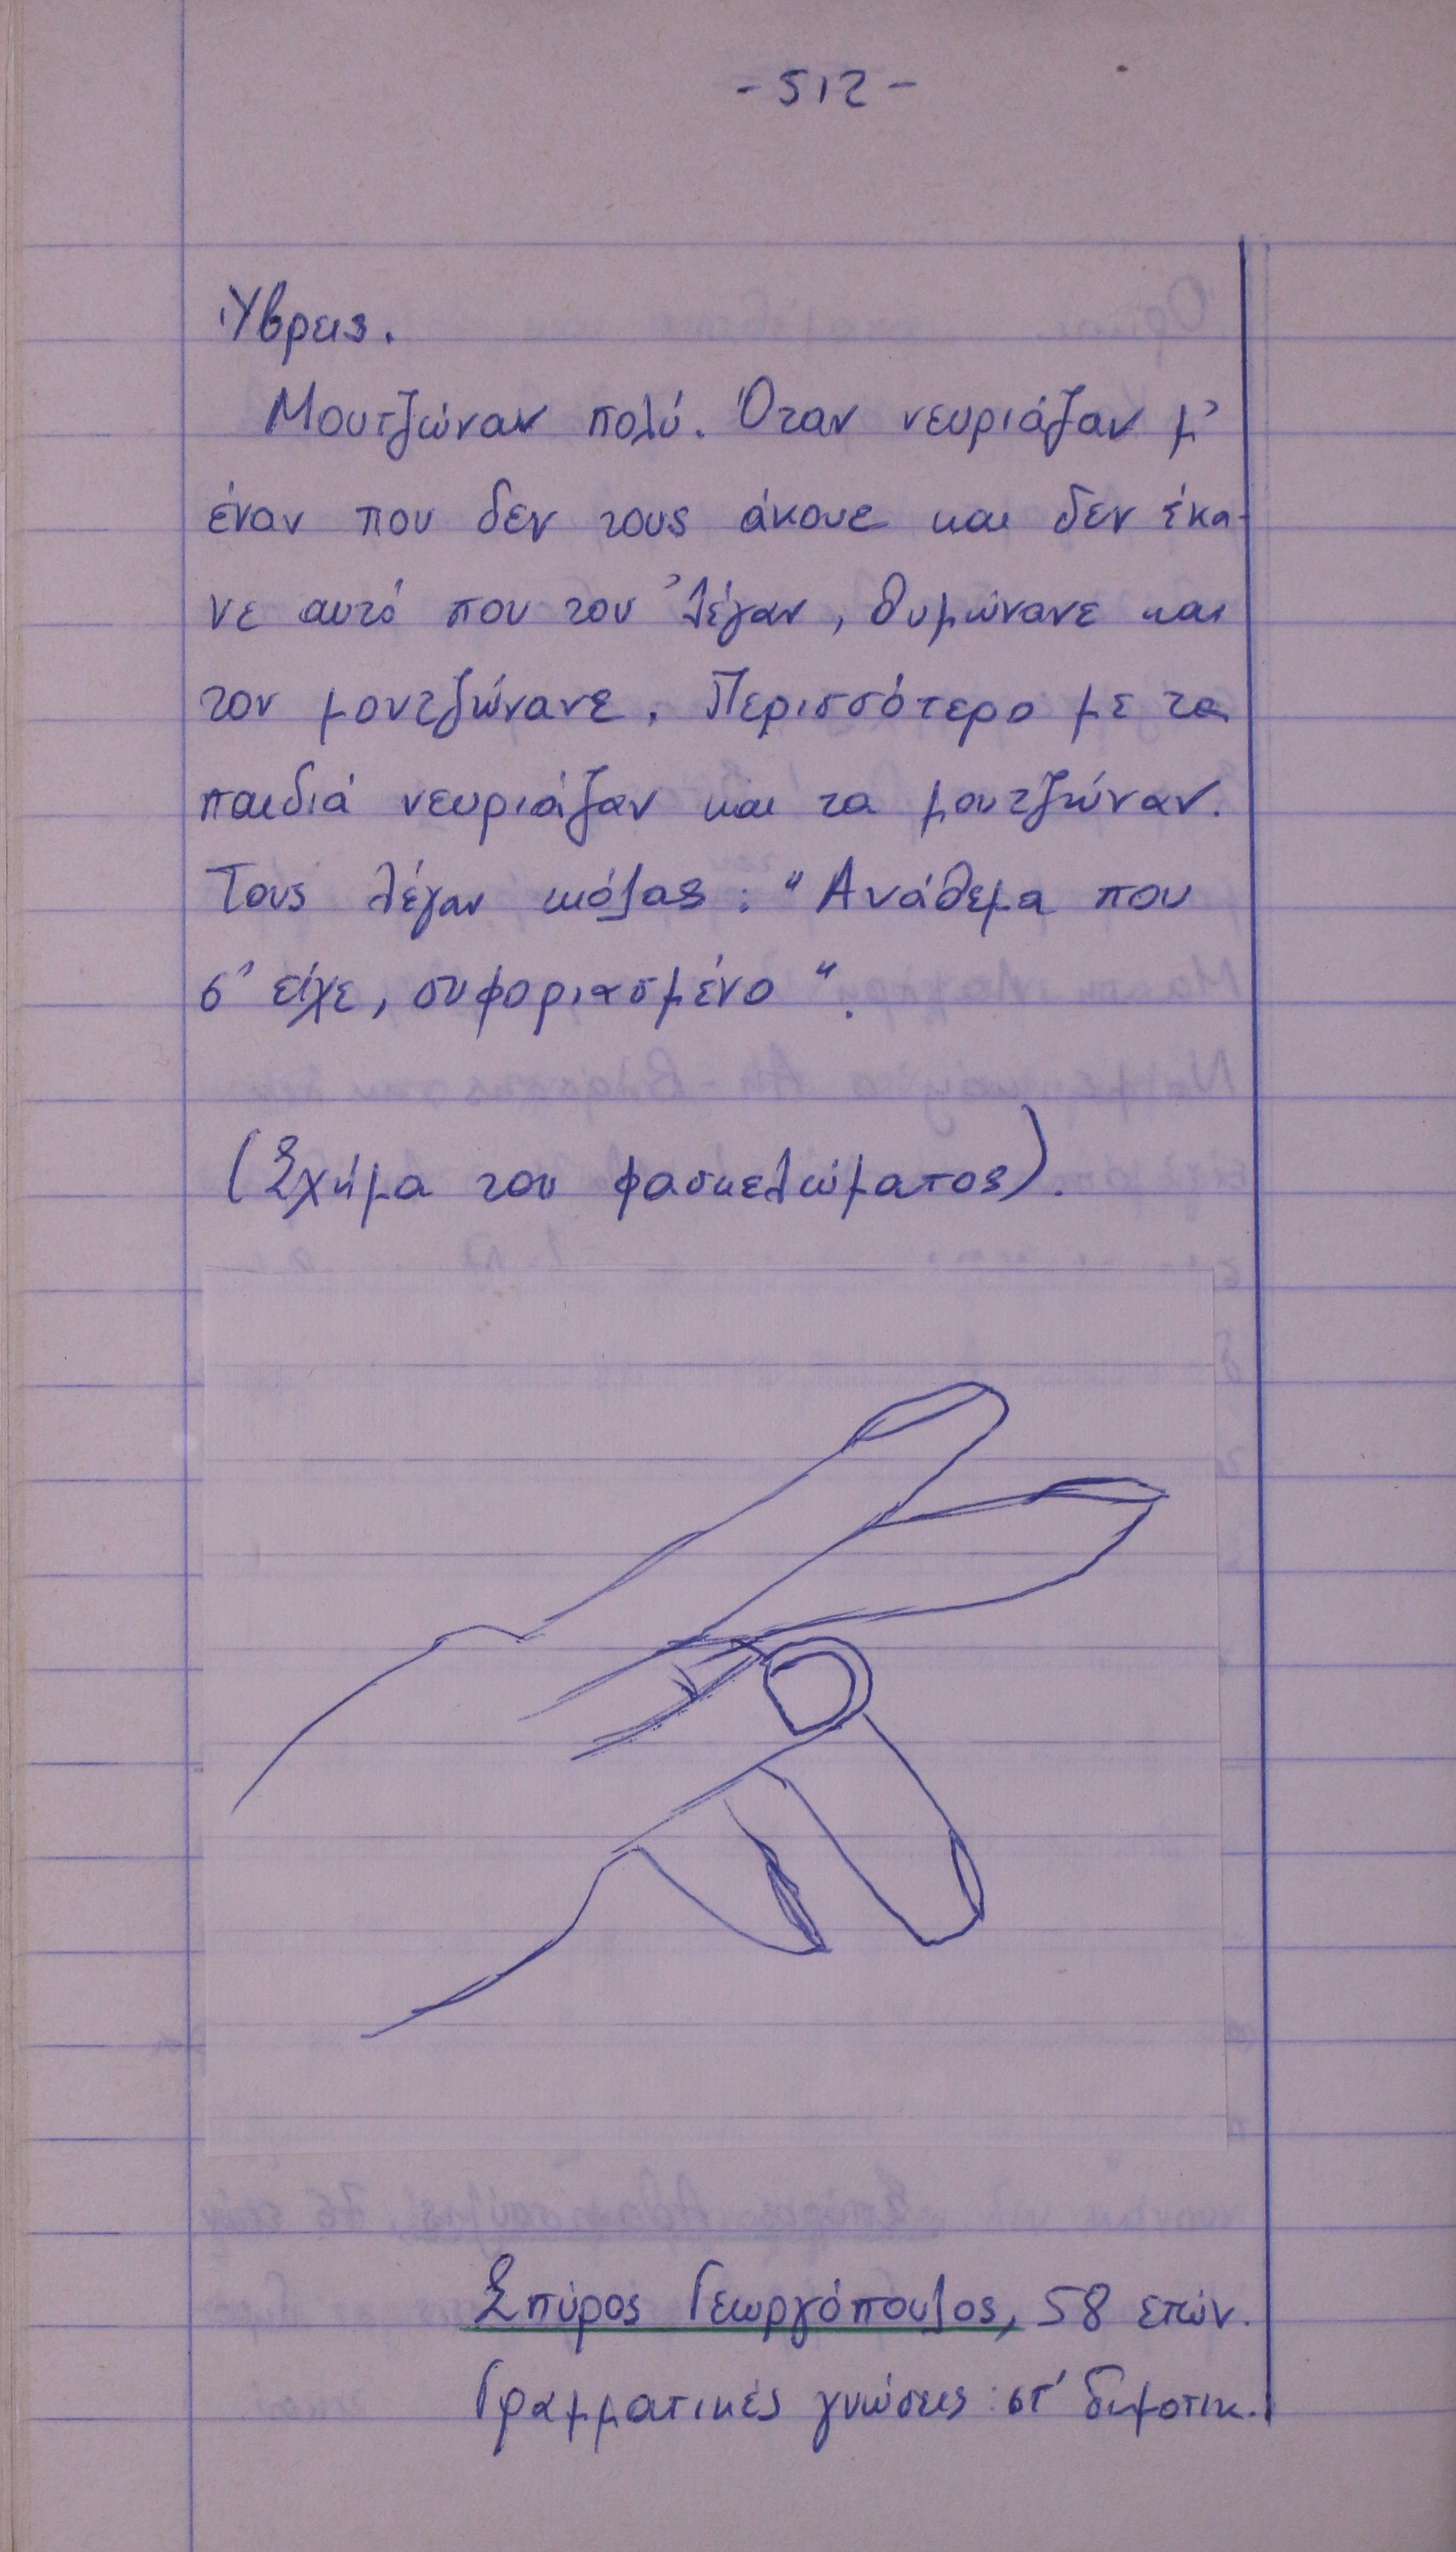 - 512 -
Ύβρεις.
Μουτζώναν πολύ. Όταν νευριάζαν μ'
έναν που δεν τους άκουε και δεν έκα-
νε αυτό που του 'λέγαν, θυμώνανε και
τον μουτζώνανε. Περισσότερο με τα
παιδιά νευριάζαν και τα μουτζώναν.
Τους λέγαν κιόλας: "Ανάθεμα που
σ' είχε, συφοριασμένο".
(Σχήμα του φασκελώματος).
Σπύρος Γεωργόπουλος, 58 ετών.
Γραμματικές γνώσεις: στ' δημοτικ.